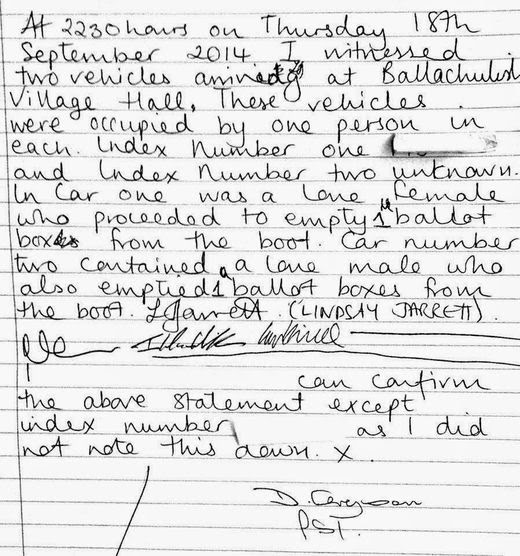 At 2230 hours on Thursday 18th
September 2014 I witnessed
two vehicles arriving at Ballachulish
Village Hall. These vehicles
were occupied by one person in
each. Index Number one
and Index Number two unknown.
In Car one was a lone female
who proceeded to empty 1 ballot
box from the boot. Car number
two contained a lone male who
also emptied 1 ballot boxes from
the boot. LJarrett. (LINDSAY JARRETT).
I
can confirm
the above statement except
index number as I did
not note this down. x.
D. Ferguson
PST.